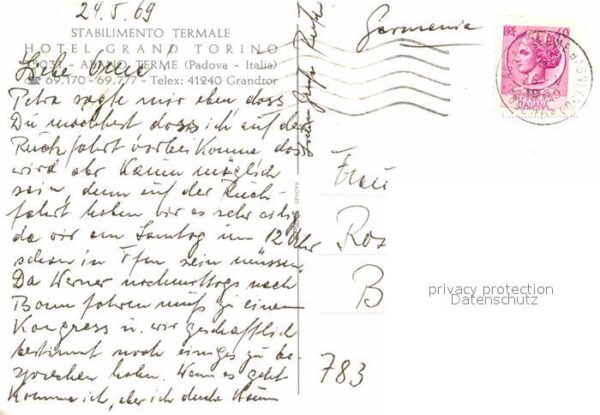 24.5.69
STABILIMENTO TERMALE
HOTEL GRAND TORINO
35031 - ABANO TERME (Padova - Italia)
☎ 69.170 - 69.777 - Telex: 41240 Grandtor
Liebe
Petra sagte mir eben dass
Du möchtest dass ich auf der
Rückfahrt vorbei komme das
wird aber kaum möglich
sein, denn auf der Rück-
fahrt haben wir es sehr eilig
da wir am Samstag um 12 Uhr
schon in sein müssen
Da Werner nachmittags nach
Bonn fahren muß zu einem
Kongress u. wir geschäftlich
bestimmt noch einiges zu be-
sprechen haben. Wenn es geht
komme ich, aber ich denke kaum
Gruß
Germania
LIRE 70
ITALIANA
Frau
Ros
B
783
privacy protection
Datenschutz